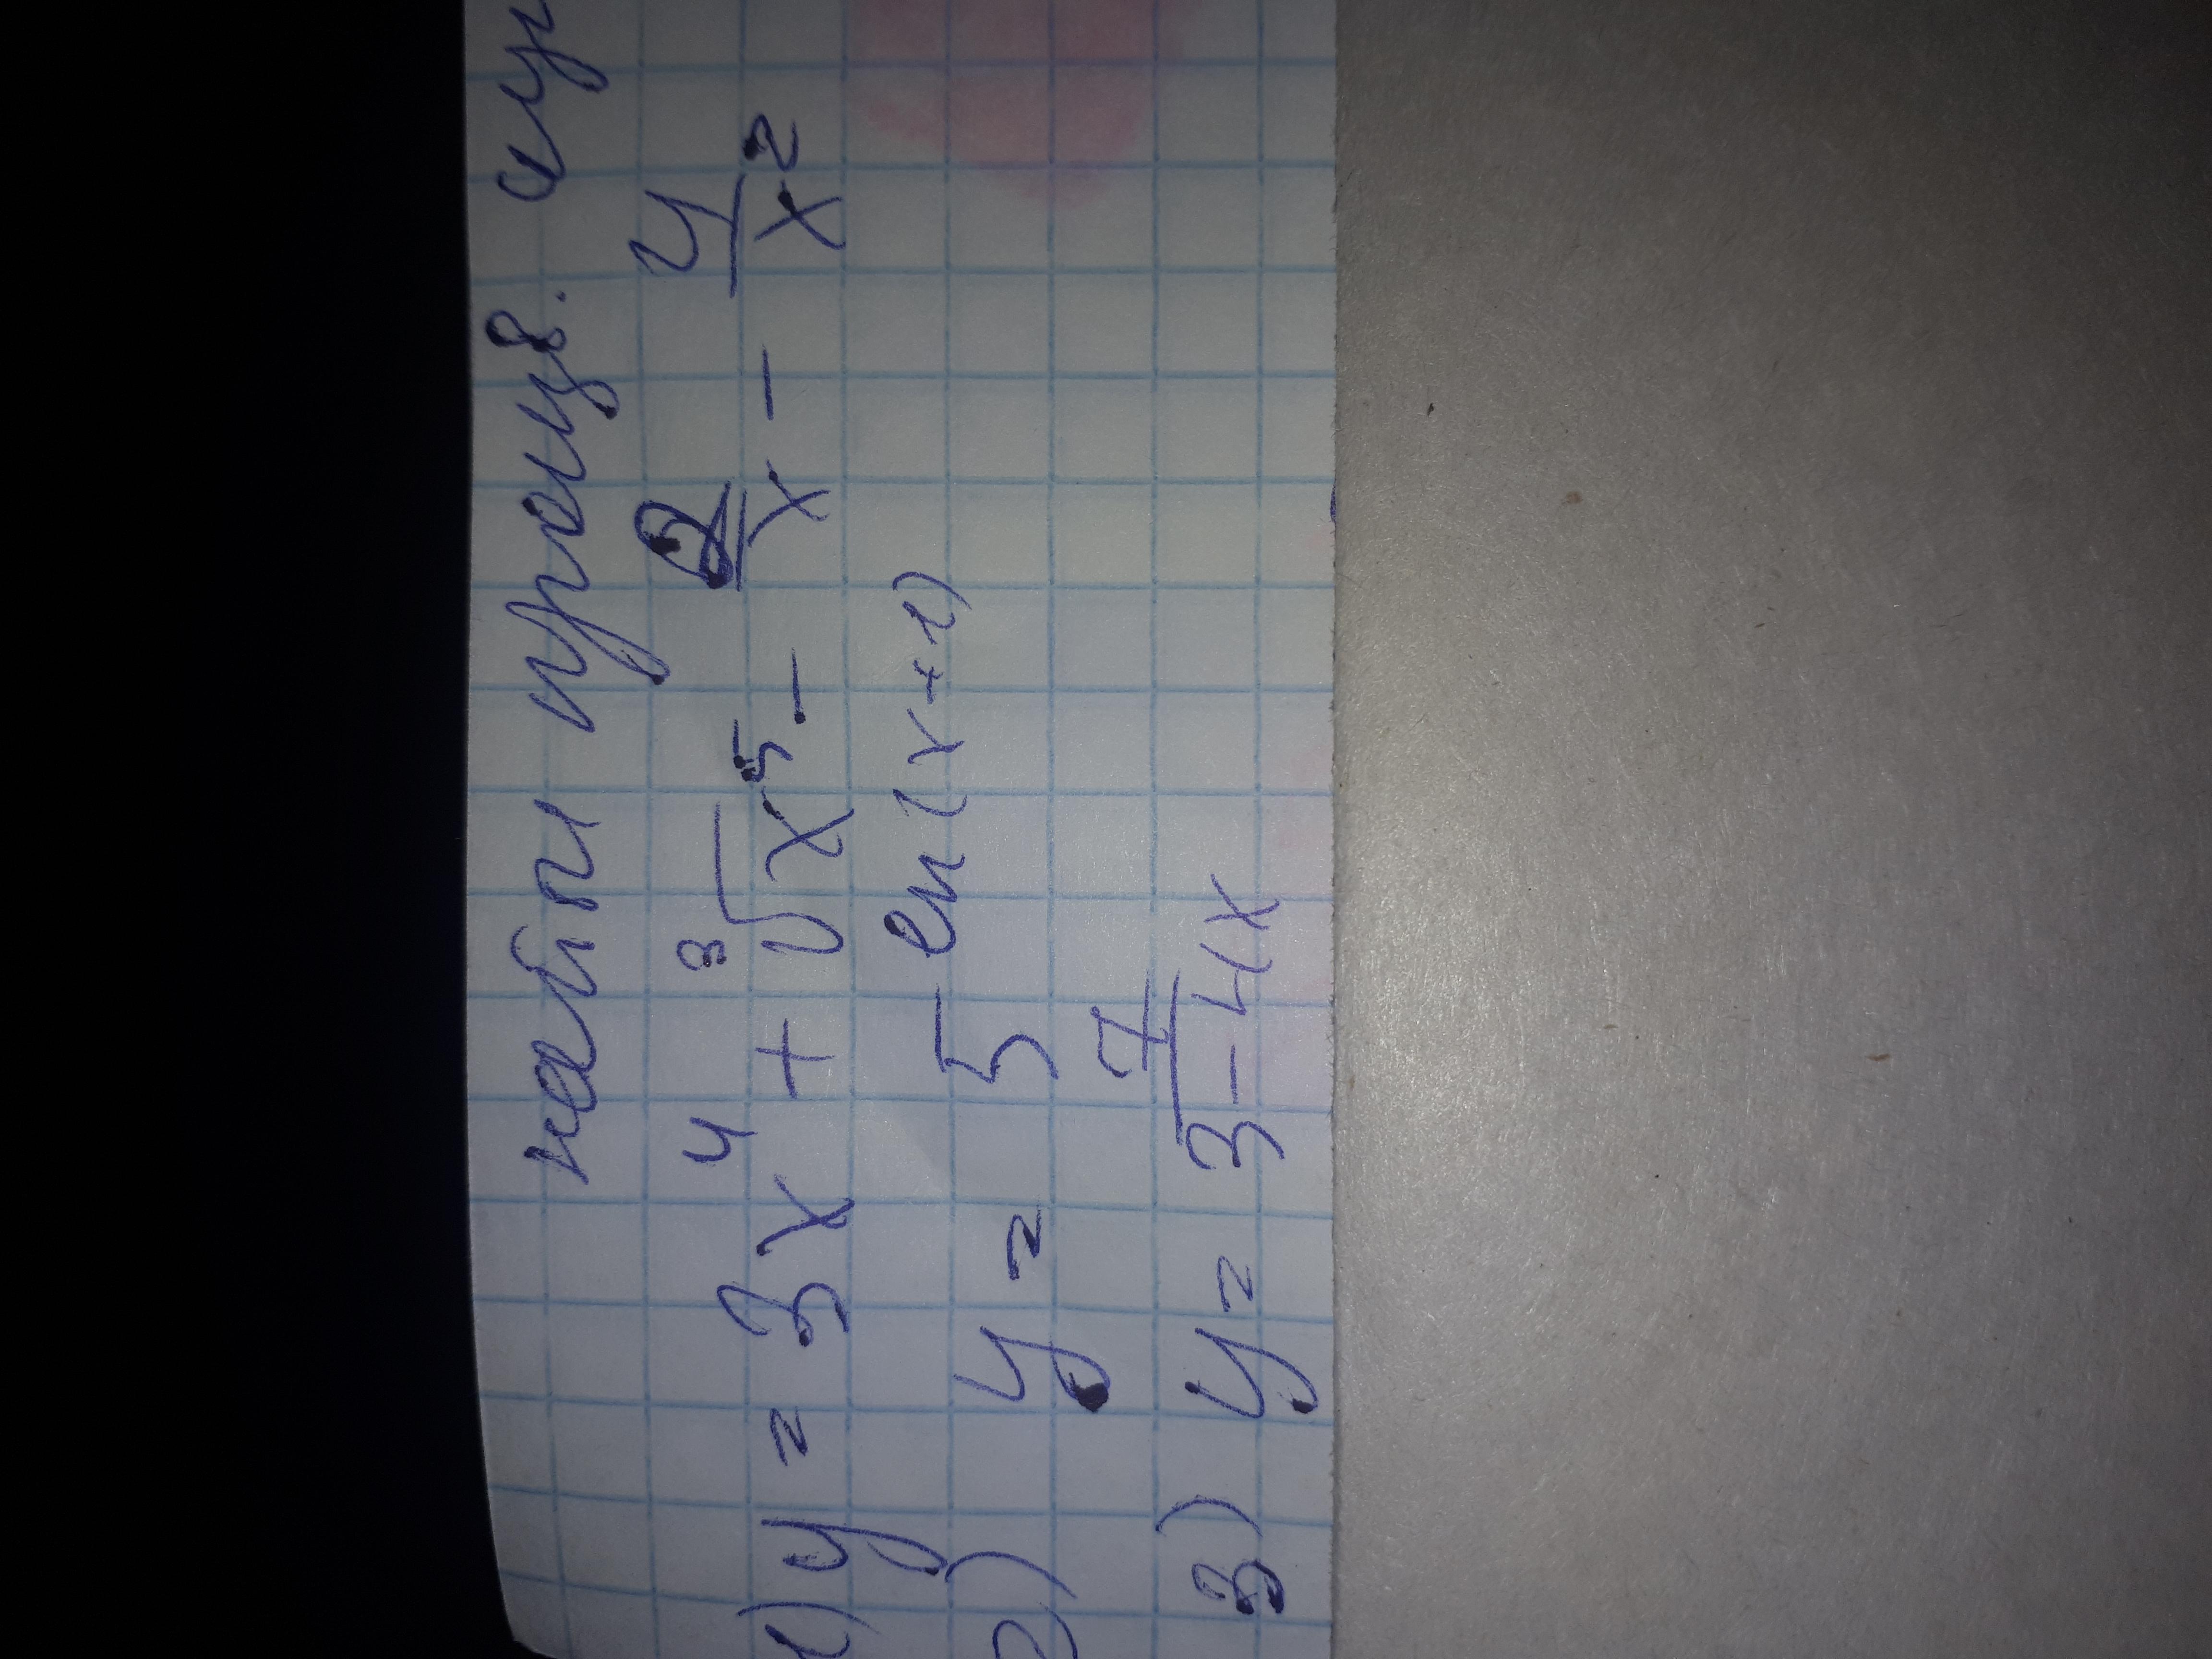 найти произв.
1) y = 3x⁴ + ∛x⁵ - 2/x - 4/x²
2) y = 5^ln(x+1)
3) y = 7/(3-4x)